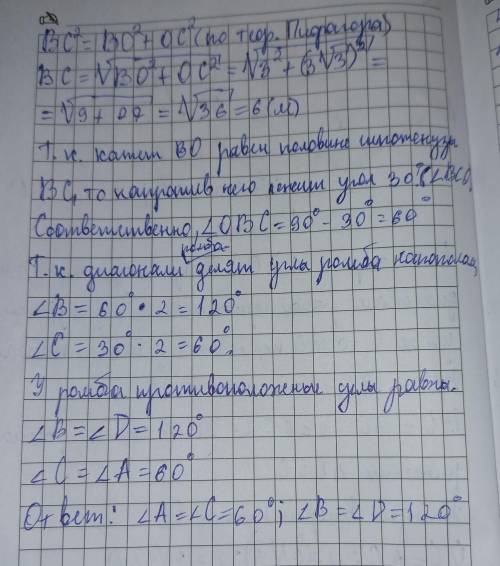 BC² = BO² + OC² (по теор. Пифагора)
BC = √BO² + OC² = √3² + (3√3)² =
= √9 + 27 = √36 = 6 (м)
Т. к. катет BO равен половине гипотенузы
BC, то напротив него лежит угол 30° (∠BCO)
Соответственно, ∠OBC = 90° - 30° = 60°
Т. к. диагонали ромба делят углы ромба напополам,
∠B = 60° · 2 = 120°
∠C = 30° · 2 = 60°.
У ромба противоположные углы равны.
∠B = ∠D = 120°
∠C = ∠A = 60°
Ответ: ∠A = ∠C = 60°; ∠B = ∠D = 120°